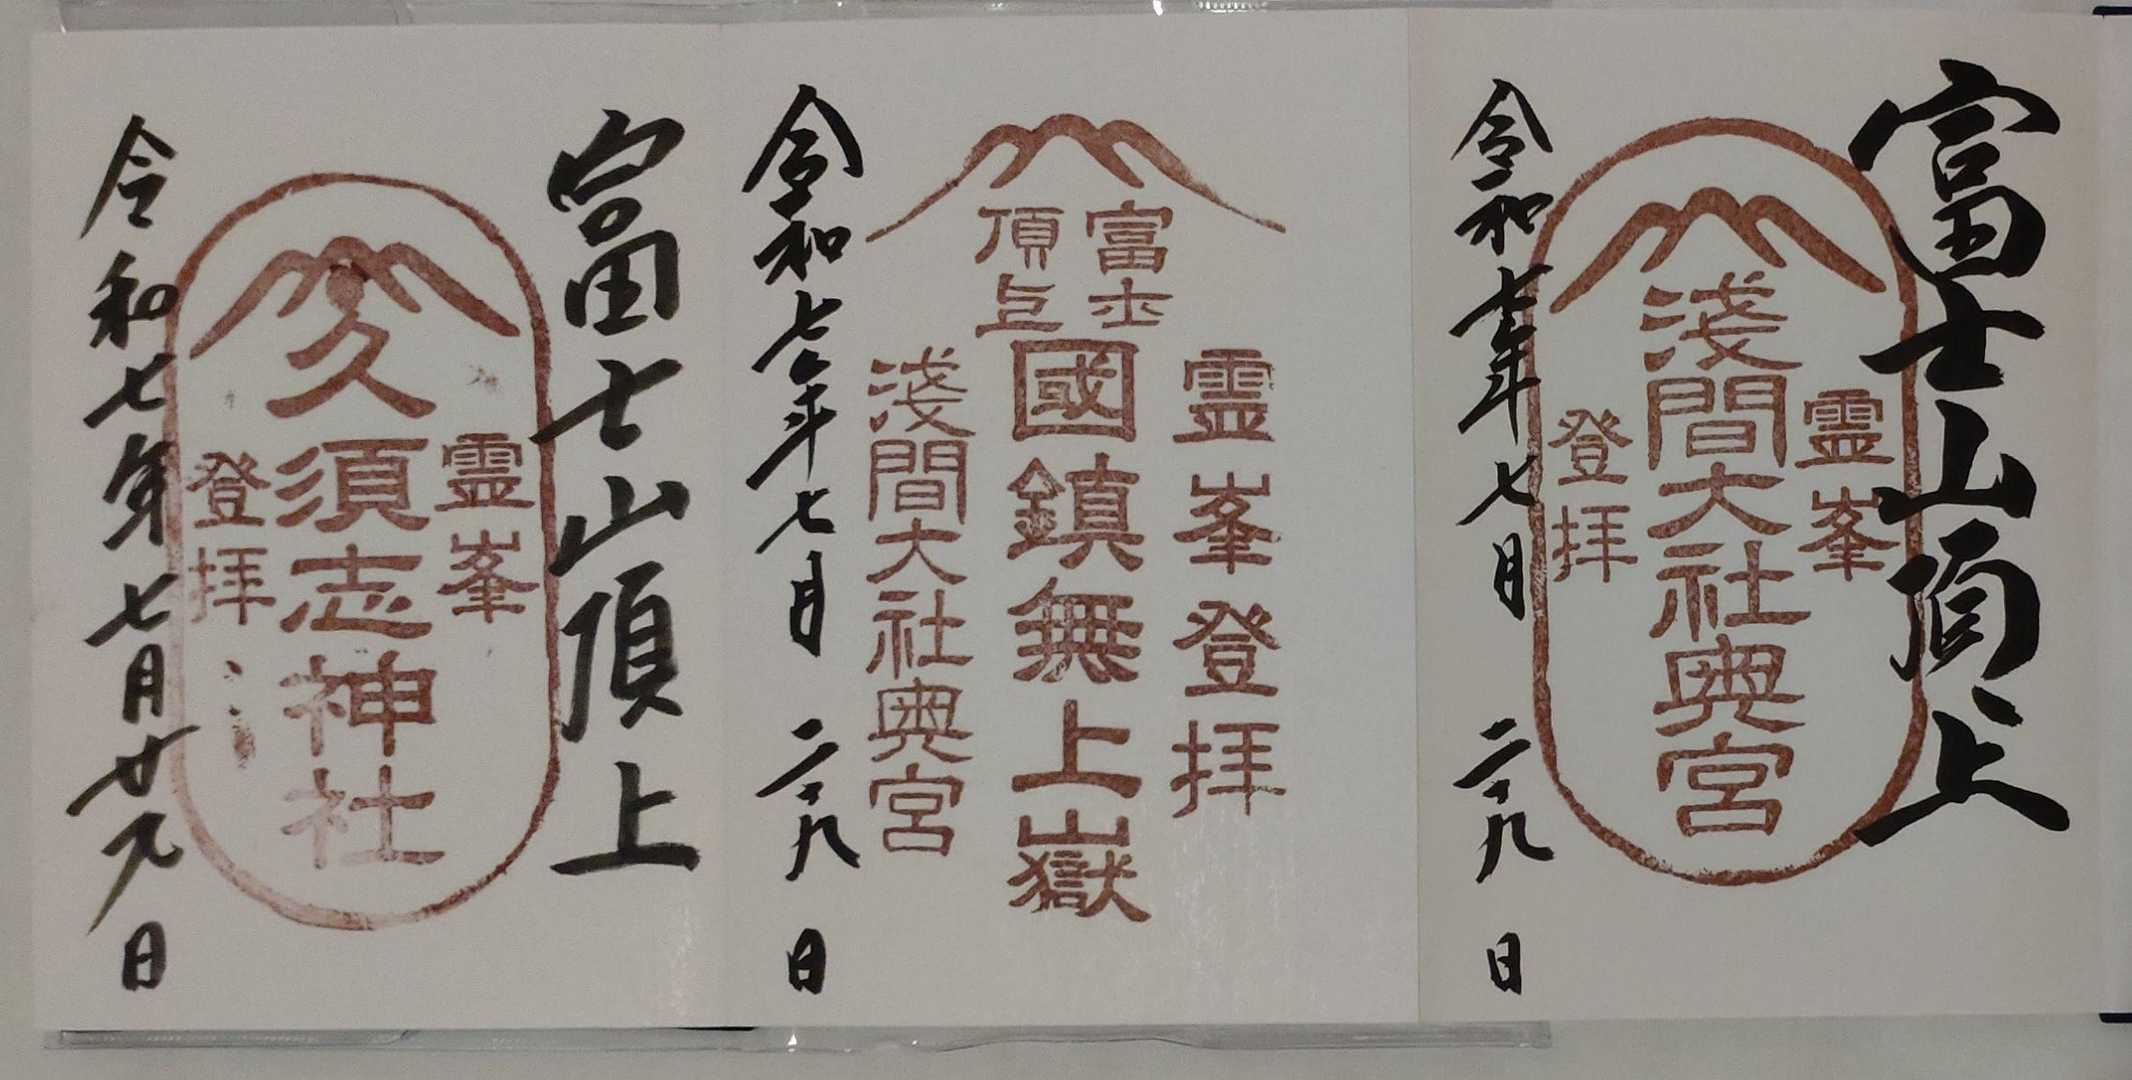 富士山頂上
霊峯
淺間大社奥宮
登拝
令和七年七月二十九日
霊峯登拝
富士
頂上
國鎮無上嶽
淺間大社奥宮
令和七年七月二十九日
富士山頂上
霊峯
久須志神社
登拝
令和七年七月廿九日